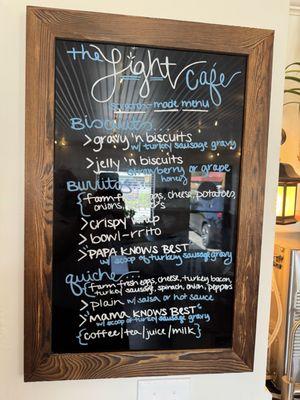 the Light Café
scratch-made menu
Biscuits
>gravy 'n biscuits
w/ turkey sausage gravy
>jelly 'n biscuits
strawberry or grape
honey
Burritos
{farm fresh eggs, cheese, potatoes,
onions,
>crispy
>bowl-rrito
>"PAPA KNOWS BEST"
w/ scoop of turkey sausage gravy
quiche
{farm fresh eggs, cheese, turkey bacon,
turkey sausage, spinach, onion, peppers
>plain w/ salsa or hot sauce
>"MAMA KNOWS BEST"
w/ scoop of turkey sausage gravy
{coffee/tea/juice/milk}